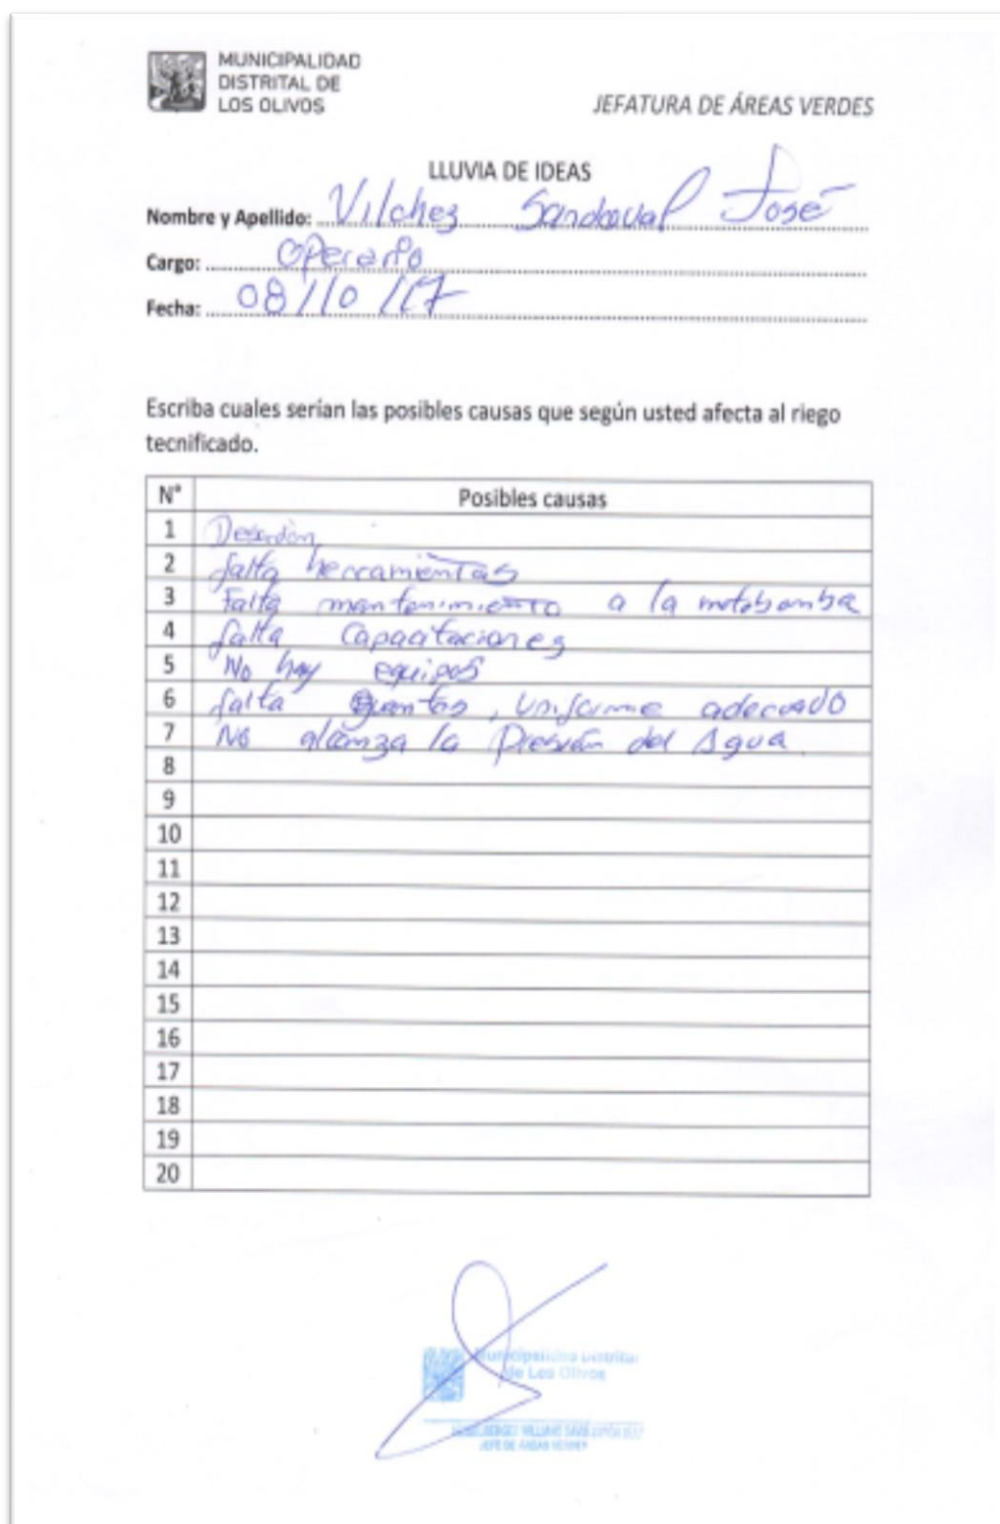 MUNICIPALIDAD
DISTRITAL DE
LOS OLIVOS
JEFATURA DE ÁREAS VERDES
LLUVIA DE IDEAS
Nombre y Apellido: Vilchez Sandoval José
Cargo: Operario
Fecha: 08/10/17
Escriba cuales serían las posibles causas que según usted afecta al riego
tecnificado.
N° Posibles causas
1 Desorden
2 falta herramientas
3 Falta mantenimiento a la motobomba
4 falta Capacitaciones
5 No hay equipos
6 falta guantes, uniforme adecuado
7 No alcanza la Presión del Agua
8
9
10
11
12
13
14
15
16
17
18
19
20
Municipalidad Distrital
de Los Olivos
JEFE DE ÁREAS VERDES